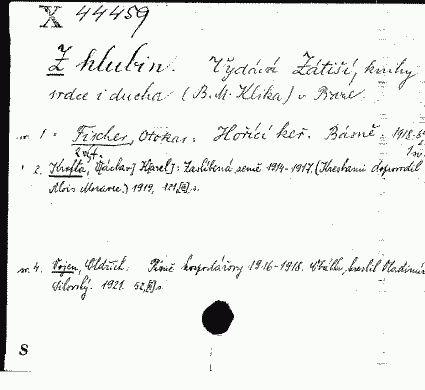 X 44459
Z hlubin. Vydává Zátiší, knihy
srdce i ducha (B. M. Klika) v Praze.
sv. 1. Fischer, Otokar: Hořící keř. Básně. 1918.
2 výt.
2. Krofta, V[áclav] K[arel]: Zaslíbená země 1914-1917. (Kresbami doprovodil
Alois Moravec.) 1919. 121, s.
sv. 4. Vojen, Oldřich: Písně hospodářovy 1916-1918. Obálku kreslil Vladimír
Silovský. 1921. 52, s.
S